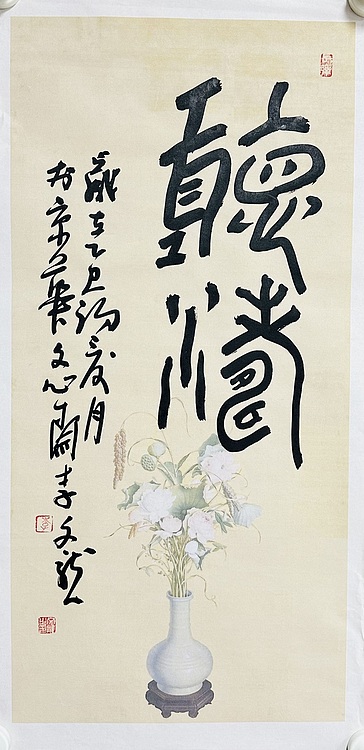 聽濤
歲在乙巳初夏月
於京華文心閣李文龍